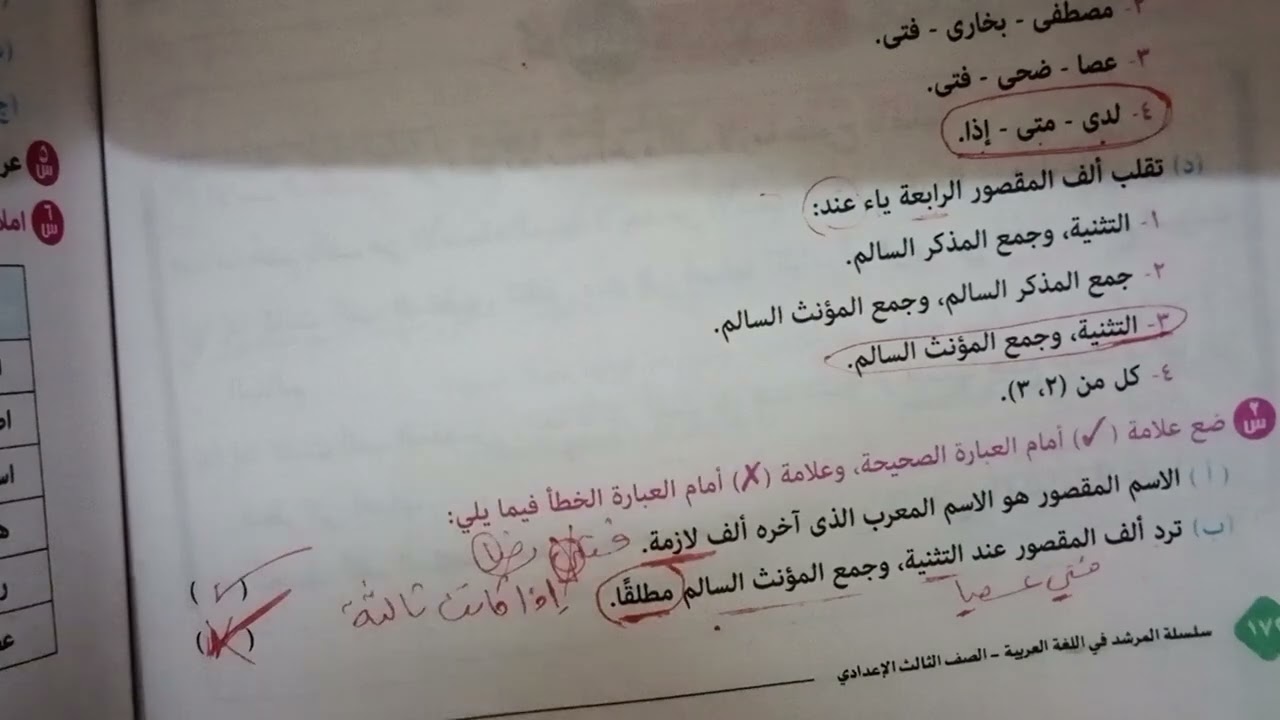 ٢- مصطفى - بخارى - فتى.
٣- عصا - ضحى - فتى.
٤- لدى - متى - إذا.
(د) تقلب ألف المقصور الرابعة ياء عند:
١- التثنية، وجمع المذكر السالم.
٢- جمع المذكر السالم، وجمع المؤنث السالم.
٣- التثنية، وجمع المؤنث السالم.
٤- كل من (٢، ٣).
س٢ ضع علامة (✓) أمام العبارة الصحيحة، وعلامة (✗) أمام العبارة الخطأ فيما يلي:
(أ) الاسم المقصور هو الاسم المعرب الذى آخره ألف لازمة. (✓)
(ب) ترد ألف المقصور عند التثنية، وجمع المؤنث السالم مطلقًا. إذا كانت ثالثة
فتى عصا
سلسلة المرشد في اللغة العربية - الصف الثالث الإعدادي
س٥ عر
س٦ املا